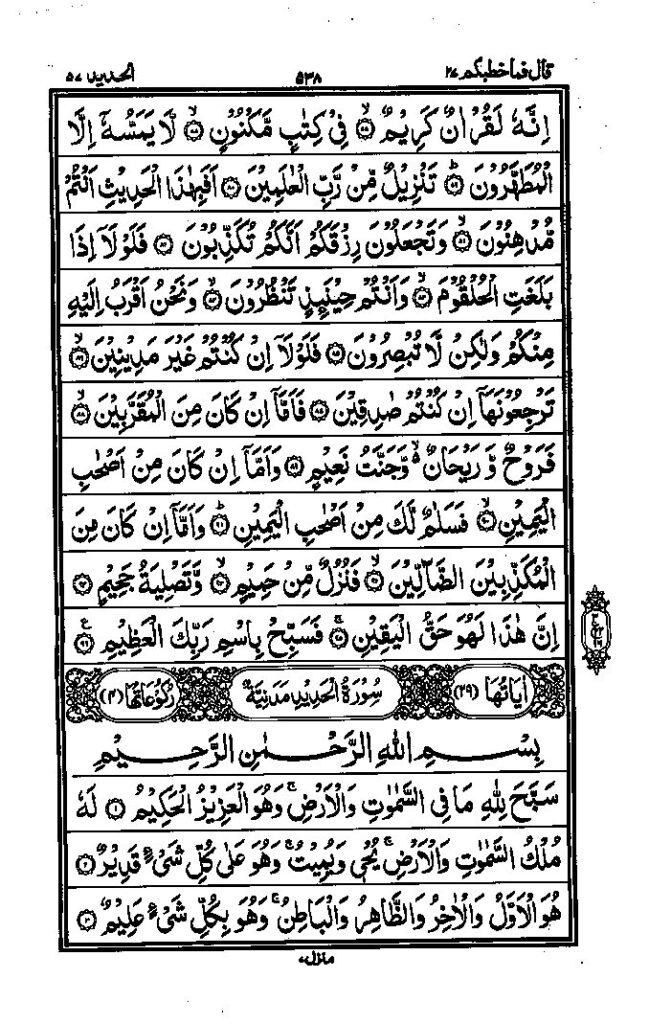 قال فما خطبكم ٢٧ ٥٣٨ الحديد ٥٧
اِنَّهٗ لَقُرْاٰنٌ كَرِيْمٌ ۙ﴿٧٧﴾ فِىْ كِتٰبٍ مَّكْنُوْنٍ ۙ﴿٧٨﴾ لَّا يَمَسُّهٗۤ اِلَّا
الْمُطَهَّرُوْنَ ؕ﴿٧٩﴾ تَنْزِيْلٌ مِّنْ رَّبِّ الْعٰلَمِيْنَ ﴿٨٠﴾ اَفَبِهٰذَا الْحَدِيْثِ اَنْتُمْ
مُّدْهِنُوْنَ ۙ﴿٨١﴾ وَتَجْعَلُوْنَ رِزْقَكُمْ اَنَّكُمْ تُكَذِّبُوْنَ ﴿٨٢﴾ فَلَوْلَاۤ اِذَا
بَلَغَتِ الْحُلْقُوْمَ ۙ﴿٨٣﴾ وَاَنْتُمْ حِيْنَئِذٍ تَنْظُرُوْنَ ۙ﴿٨٤﴾ وَنَحْنُ اَقْرَبُ اِلَيْهِ
مِنْكُمْ وَلٰكِنْ لَّا تُبْصِرُوْنَ ﴿٨٥﴾ فَلَوْلَاۤ اِنْ كُنْتُمْ غَيْرَ مَدِيْنِيْنَ ۙ﴿٨٦﴾
تَرْجِعُوْنَهَاۤ اِنْ كُنْتُمْ صٰدِقِيْنَ ﴿٨٧﴾ فَاَمَّاۤ اِنْ كَانَ مِنَ الْمُقَرَّبِيْنَ ۙ﴿٨٨﴾
فَرَوْحٌ وَّرَيْحَانٌ ۙ۬ وَّجَنَّتُ نَعِيْمٍ ﴿٨٩﴾ وَاَمَّاۤ اِنْ كَانَ مِنْ اَصْحٰبِ
الْيَمِيْنِ ۙ﴿٩٠﴾ فَسَلٰمٌ لَّكَ مِنْ اَصْحٰبِ الْيَمِيْنِ ؕ﴿٩١﴾ وَاَمَّاۤ اِنْ كَانَ مِنَ
الْمُكَذِّبِيْنَ الضَّآلِّيْنَ ۙ﴿٩٢﴾ فَنُزُلٌ مِّنْ حَمِيْمٍ ۙ﴿٩٣﴾ وَّتَصْلِيَةُ جَحِيْمٍ ﴿٩٤﴾
اِنَّ هٰذَا لَهُوَ حَقُّ الْيَقِيْنِ ۚ﴿٩٥﴾ فَسَبِّحْ بِاسْمِ رَبِّكَ الْعَظِيْمِ ﴿٩٦﴾
اٰيَاتُهَا (٢٩) سُوْرَةُ الْحَدِيْدِ مَدَنِيَّةٌ رُكُوْعَاتُهَا (٤)
بِسْمِ اللهِ الرَّحْمٰنِ الرَّحِيْمِ
سَبَّحَ لِلّٰهِ مَا فِى السَّمٰوٰتِ وَالْاَرْضِ ۚ وَهُوَ الْعَزِيْزُ الْحَكِيْمُ ﴿١﴾ لَهٗ
مُلْكُ السَّمٰوٰتِ وَالْاَرْضِ ۚ يُحْىٖ وَيُمِيْتُ ۚ وَهُوَ عَلٰى كُلِّ شَىْءٍ قَدِيْرٌ ﴿٢﴾
هُوَ الْاَوَّلُ وَالْاٰخِرُ وَالظَّاهِرُ وَالْبَاطِنُ ۚ وَهُوَ بِكُلِّ شَىْءٍ عَلِيْمٌ ﴿٣﴾
منزل ٧